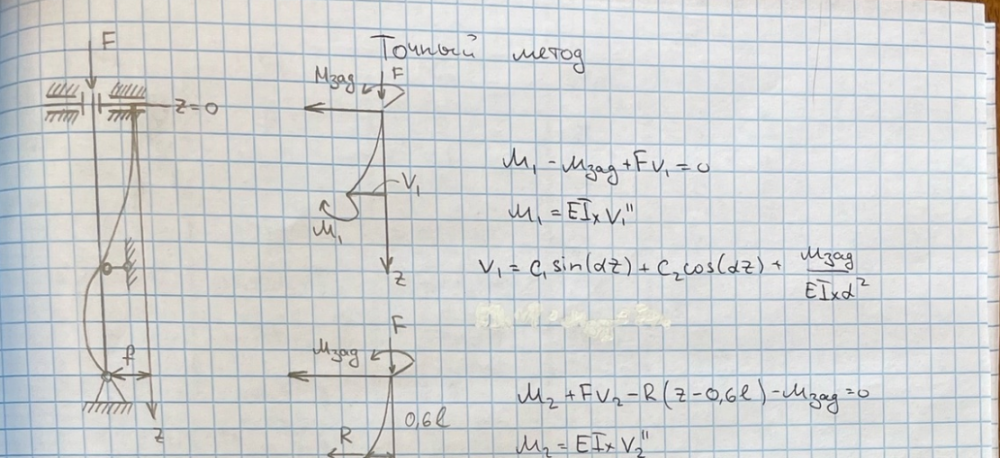 Точный метод
F
z=0
Mзад
F
V₁
M₁
z
M₁ - Mзад + FV₁ = 0
M₁ = EIx V₁''
V₁ = C₁ sin(αz) + C₂ cos(αz) + Mзад / EIxα²
f
z
F
Mзад
0,6ℓ
R
M₂ + FV₂ - R(z - 0,6ℓ) - Mзад = 0
M₂ = EIx V₂''